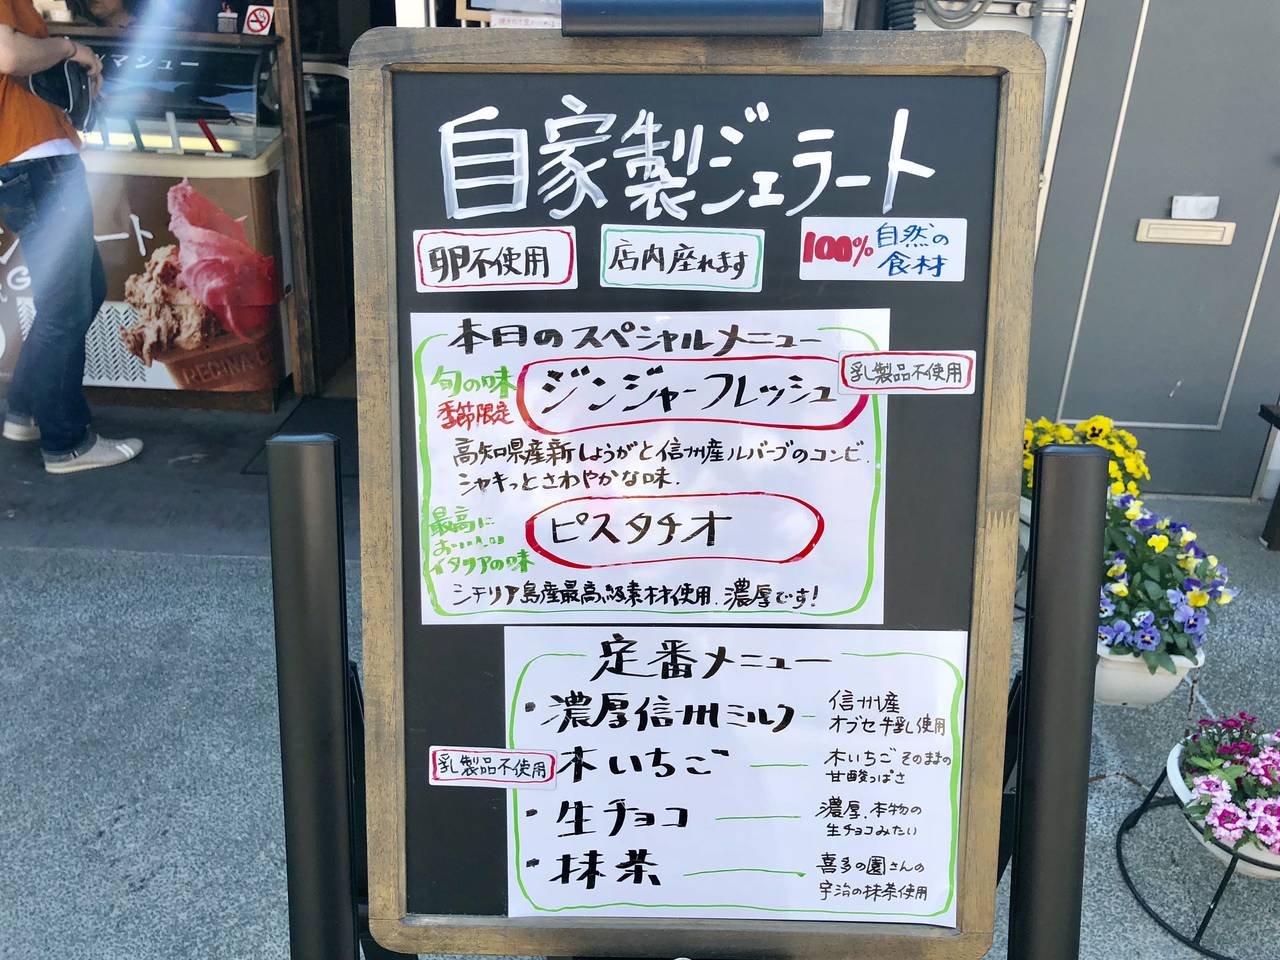 自家製ジェラート
卵不使用
店内座れます
100% 自然の
食材
本日のスペシャルメニュー
旬の味
季節限定
ジンジャーフレッシュ
乳製品不使用
高知県産新しょうがと信州産ルバーブのコンビ.
シャキっとさわやかな味.
最高に
おいしい
イタリアの味
ピスタチオ
シチリア島産最高級素材使用.濃厚です!
定番メニュー
・濃厚信州ミルク
信州産
オブセ牛乳使用
乳製品不使用
木いちご
木いちごそのままの
甘酸っぱさ
・生チョコ
濃厚.本物の
生チョコみたい
・抹茶
喜多の園さんの
宇治の抹茶使用
マシュー
REGINA